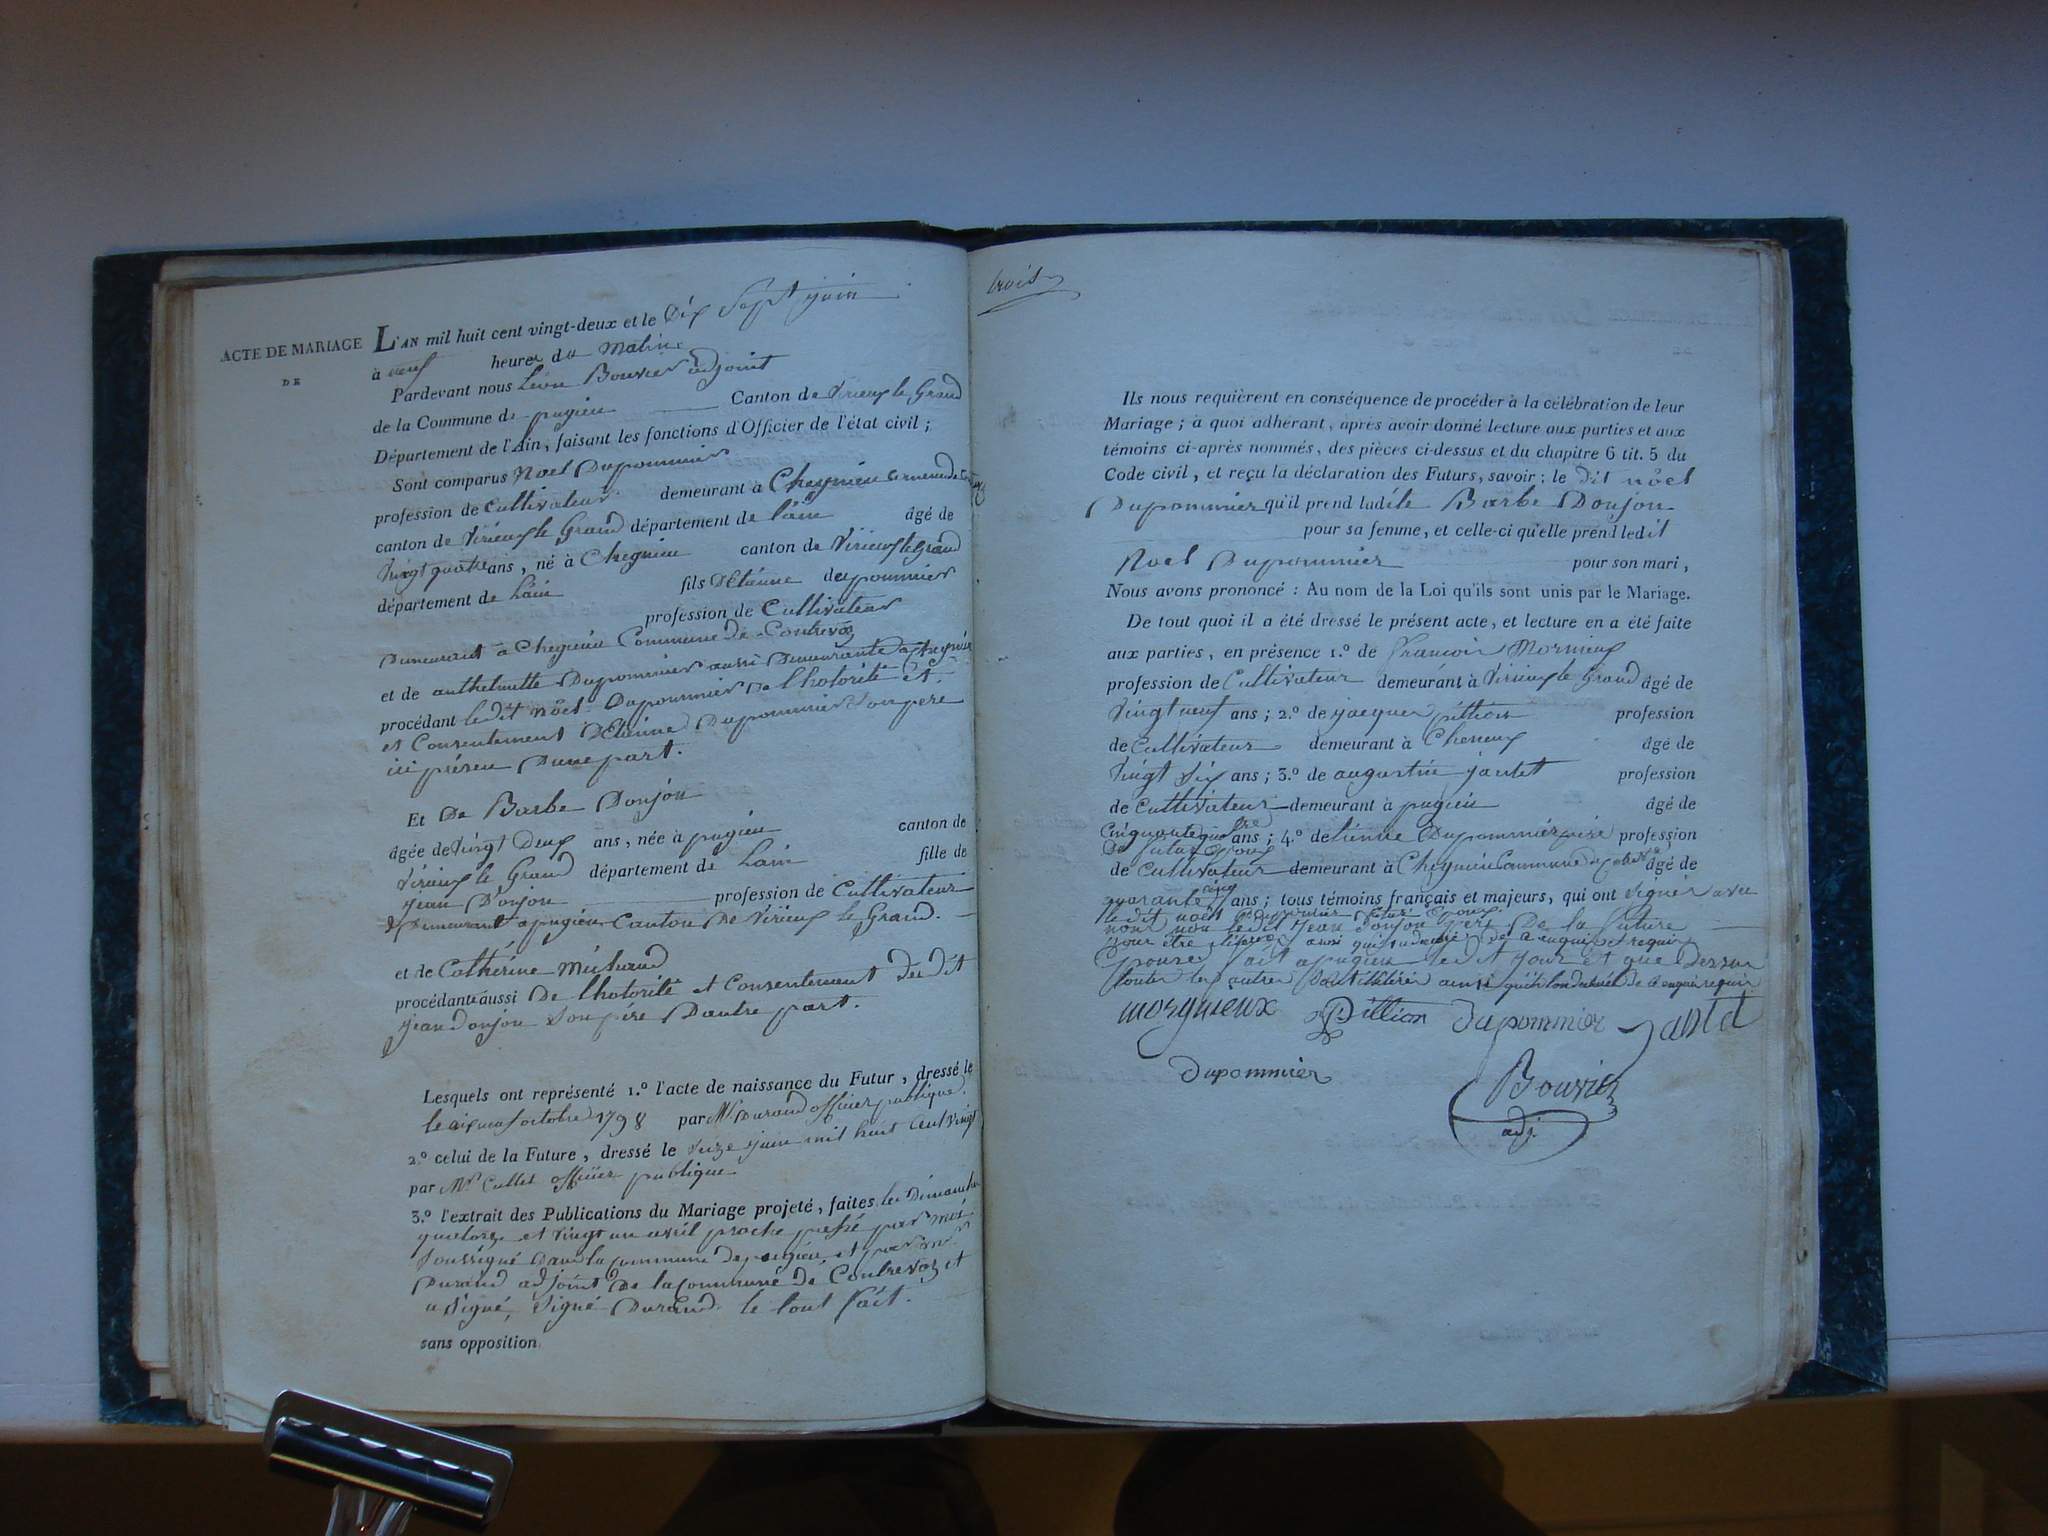 ACTE DE MARIAGE
DE
L'AN mil huit cent vingt-deux et le Dix Sept juin
à neuf heures du Matin
Pardevant nous Léon Bouvier adjoint
de la Commune de pugieu Canton de Virieux le Grand
Département de l'Ain, faisant les fonctions d'Officier de l'état civil ;
Sont comparus Noel Dupommier
profession de Cultivateur demeurant à Chegnieu
canton de Virieux le Grand département de lain âgé de
Vingt quatre ans, né à Chegnieu canton de Virieux le Grand
département de Lain fils DEtienne dupommier
profession de Cultivateur
Demeurant à Chegnieu Commune de Contrevoz
et de anthelmette Dupommier aussi Demeurante a Chegnieu
procédant ledit nöel Dupommier De lhotorité et
et Consentement DEtienne Dupommier Son pere
ici présen Dune part.
Et De Barbe Donjon
âgée de Vingt Deux ans, née à pugieu canton de
Virieux le Grand département de Lain fille de
jean Donjon profession de Cultivateur
Demeurant a pugieu Canton De Virieux le Grand.
et de Cathérine Michaud
procédante aussi De lhotorité et Consentement du dit
jean Donjon Son pére Dautre part.
Lesquels ont représenté 1.° l'acte de naissance du Futur, dressé le
le dix neuf octobre 1798 par Mr Durand officier publique
2.° celui de la Future, dressé le Seize juin mil huit Cent Vingt
par Mr Cullet officier publique
3.° l'extrait des Publications du Mariage projeté, faites les Dimanche
quatorze et Vingt un avril proche passé par moi
Soussigné Dans la Commune de pugieu et par Mr
Durand adjoint De la Commune de Contrevoz et
a Signé, Signé Durand. le tout fait.
sans opposition.
trois
Ils nous requièrent en conséquence de procéder à la célébration de leur
Mariage ; à quoi adhérant, après avoir donné lecture aux parties et aux
témoins ci-après nommés, des pièces ci-dessus et du chapitre 6 tit. 5 du
Code civil, et reçu la déclaration des Futurs, savoir : le dit nöel
Dupommier qu'il prend ladite Barbe Donjon
pour sa femme, et celle-ci qu'elle prend ledit
Noel Dupommier pour son mari,
Nous avons prononcé : Au nom de la Loi qu'ils sont unis par le Mariage.
De tout quoi il a été dressé le présent acte, et lecture en a été faite
aux parties, en présence 1.° de Francois Mornieux
profession de Cultivateur demeurant à Virieux le Grand âgé de
Vingt neuf ans ; 2.° de jacques pillion profession
de Cultivateur demeurant à Cheneux âgé de
Vingt Six ans ; 3.° de augustin jantet profession
de Cultivateur demeurant à pugieu âgé de
Cinquante quatre ans ; 4.° detienne Dupommier pére profession
Du futur Epoux
de Cultivateur demeurant à Chegnieu Commune âgé de
quarante cinq ans ; tous témoins français et majeurs, qui ont Signér avec
ledit nöel Dupommier futur Epoux.
nous non ledit jean Donjon pére De la future
pour être
Epouse fait a pugieu le dit jour et que Dessus
toutes les autres
morgnieux Pillion dupommier Jantet
dupommier
Bouvier
adj.